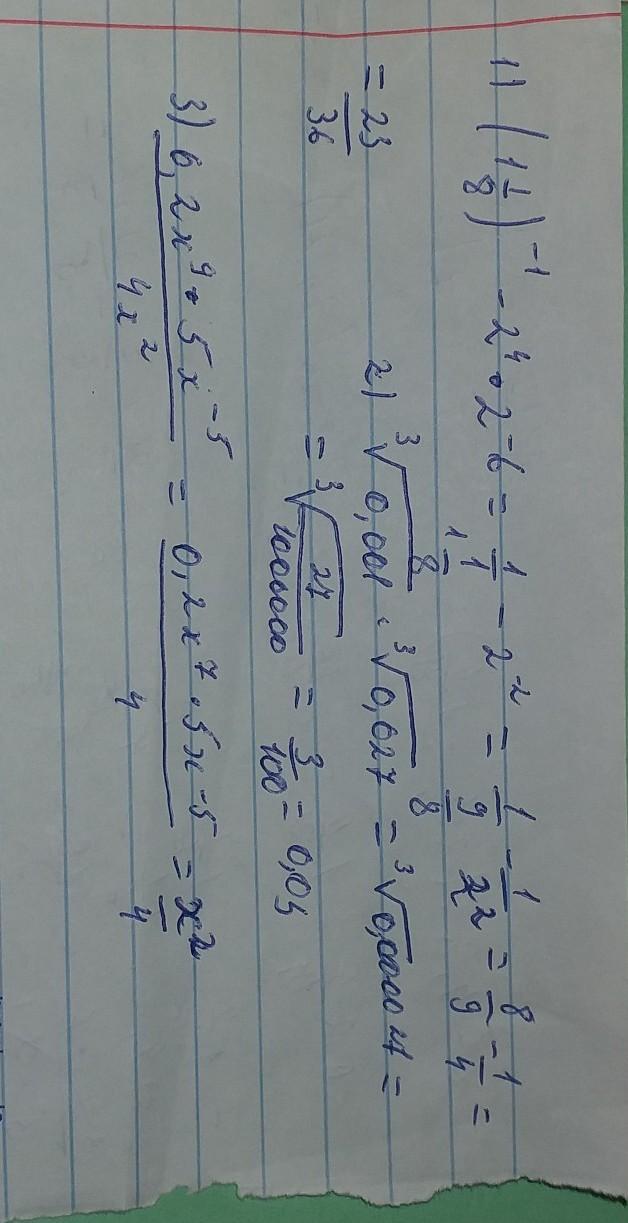 1) (1 1/8)^-1 - 2^4 · 2^-6 = 1/(1 1/8) - 2^-2 = 1/(9/8) - 1/2^2 = 8/9 - 1/4 =
= 23/36
2) ∛0,001 · ∛0,027 = ∛0,000027 =
= ∛(27/1000000) = 3/100 = 0,03
3) (0,2x^9 · 5x^-5)/(4x^2) = (0,2x^7 · 5x^-5)/4 = x^2/4